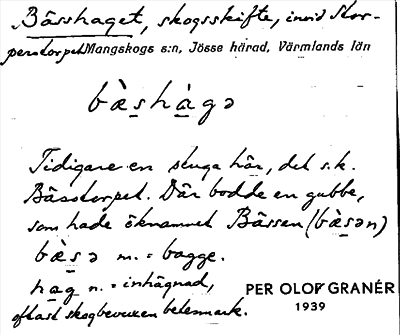 Båsshaget, skogsskifte, invid Stor-
perstorpet Mangskogs s:n, Jösse härad, Värmlands län
bæ̀s̲hàgə
Tidigare en stuga här, det s.k.
Båsstorpet. Där bodde en gubbe,
som hade öknamnet Båssen (bæ̀s̲ən)
bæ̀s̲ə m. = bagge.
hag n. = inhägnad,
oftast skogbevuxen betesmark.
PER OLOF GRANÉR
1939